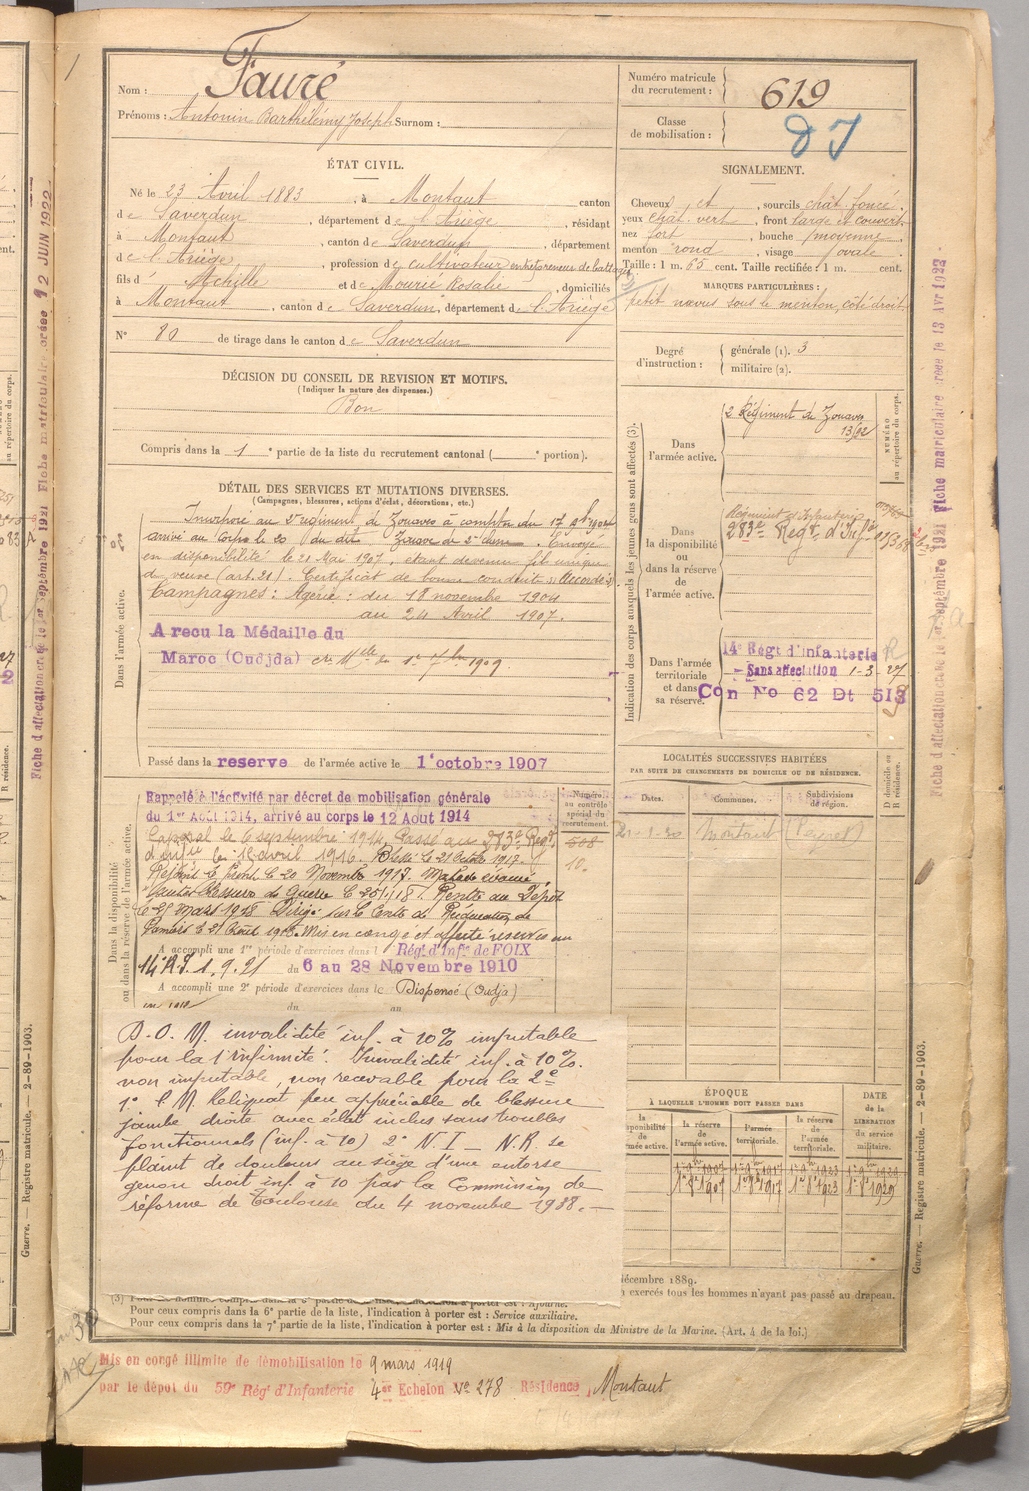 Nom : Fauré
Prénoms : Antonin Barthélémy Joseph Surnom :
Numéro matricule du recrutement : 619
Classe de mobilisation :
ÉTAT CIVIL.
Né le 23 Avril 1883, à Montaut canton
de Saverdun, département de l'Ariège, résidant
à Montaut, canton de Saverdun, département
de l'Ariège, profession de cultivateur entrepreneur de battages
fils d' Achille et de Mourié Rosalie, domiciliés
à Montaut, canton de Saverdun, département de l'Ariège
N° 80 de tirage dans le canton de Saverdun
SIGNALEMENT.
Cheveux ct, sourcils chât. foncé.
yeux chât. vert, front large et couvert.
nez fort, bouche moyenne.
menton rond, visage ovale.
Taille : 1 m. 65 cent. Taille rectifiée : 1 m. cent.
MARQUES PARTICULIÈRES :
petit nævus sous le menton, côté droit.
Degré d'instruction : générale (1). 3
militaire (2).
DÉCISION DU CONSEIL DE REVISION ET MOTIFS.
(Indiquer la nature des dispenses.)
Bon
Compris dans la 1e partie de la liste du recrutement cantonal (e portion).
DÉTAIL DES SERVICES ET MUTATIONS DIVERSES.
(Campagnes, blessures, actions d'éclat, décorations, etc.)
Dans l'armée active.
Incorporé au 2e régiment de Zouaves à compter du 17 9bre 1904
arrivé au corps le 20 du dit Zouave de 2e classe. Envoyé
en disponibilité le 21 Mai 1907, étant devenu fils unique
de veuve (art. 21). Certificat de bonne conduite "Accordé".
Campagnes : Algérie : du 18 novembre 1904
au 24 Avril 1907.
A reçu la Médaille du
Maroc (Oudjda)
Passé dans la reserve de l'armée active le 1er octobre 1907
Indication des corps auxquels les jeunes gens sont affectés (3).
NUMÉRO au répertoire du corps.
Dans l'armée active.
2e Régiment de Zouaves
Dans la disponibilité ou dans la réserve de l'armée active.
Régiment d'Infanterie
283e Regt. d'Inf.ie
Dans l'armée territoriale et dans sa réserve.
14e Régt d'infanterie
Sans affectation 1-3-27
Con No 62 Dt 513
Dans la disponibilité ou dans la réserve de l'armée active.
Numéro au contrôle spécial du recrutement.
508
10.
Rappelé à l'activité par décret de mobilisation générale
du 1er Août 1914, arrivé au corps le 12 Août 1914
Caporal le 6 septembre 1914. Passé au 283e Regt.
d'Infie le 12 avril 1916. Blessé le 21 Octobre 1917.
Rejoint le front le 20 Novembre 1917. Malade évacué
Blessure de Guerre le 25/1/18. Rentré au Dépôt
le 25 Mars 1918 Dirigé sur le Centre de Rééducation de
Mis en congé et affecté réserves au
14e R.I. 1.9.21
A accompli une 1re période d'exercices dans l Régt d'Infie de FOIX
du 6 au 28 Novembre 1910
A accompli une 2e période d'exercices dans le Dispensé (Oudja)
du au
LOCALITÉS SUCCESSIVES HABITÉES
PAR SUITE DE CHANGEMENTS DE DOMICILE OU DE RÉSIDENCE.
Dates. Communes. Subdivisions de région. D domicile ou R résidence.
Montaut
D.O.M. invalidité inf. à 10% imputable
pour la 1e infirmité. Invalidité inf. à 10%.
non imputable, non recevable pour la 2e
1° P.M. Reliquat peu appréciable de blessure
jambe droite avec éclat inclus sans troubles
fonctionnels (inf. à 10) 2° N I _ N.R se
plaint de douleurs au siège d'une entorse
genou droit inf. à 10 par la Commission de
réforme de Toulouse du 4 novembre 1938.
ÉPOQUE
À LAQUELLE L'HOMME DOIT PASSER DANS
la disponibilité de l'armée active.
la réserve de l'armée active.
l'armée territoriale.
la réserve de l'armée territoriale.
DATE de la LIBÉRATION du service militaire.
1er 9bre 1907 1er 9bre 1917 1er 9bre 1923 1er 9bre 1929
1er 8bre 1907 1er 8bre 1917 1er 8bre 1923 1er 8bre 1929
décembre 1889.
n exercés tous les hommes n'ayant pas passé au drapeau.
Pour ceux compris dans la 6e partie de la liste, l'indication à porter est : Service auxiliaire.
Pour ceux compris dans la 7e partie de la liste, l'indication à porter est : Mis à la disposition du Ministre de la Marine. (Art. 4 de la loi.)
Mis en congé illimité de démobilisation le 9 mars 1919
par le dépôt du 59e Régt d'Infanterie 4e Echelon No 278 Résidence Montaut
Guerre. — Registre matricule. — 2-89-1903.
Guerre. — Registre matricule. — 2-89-1903.